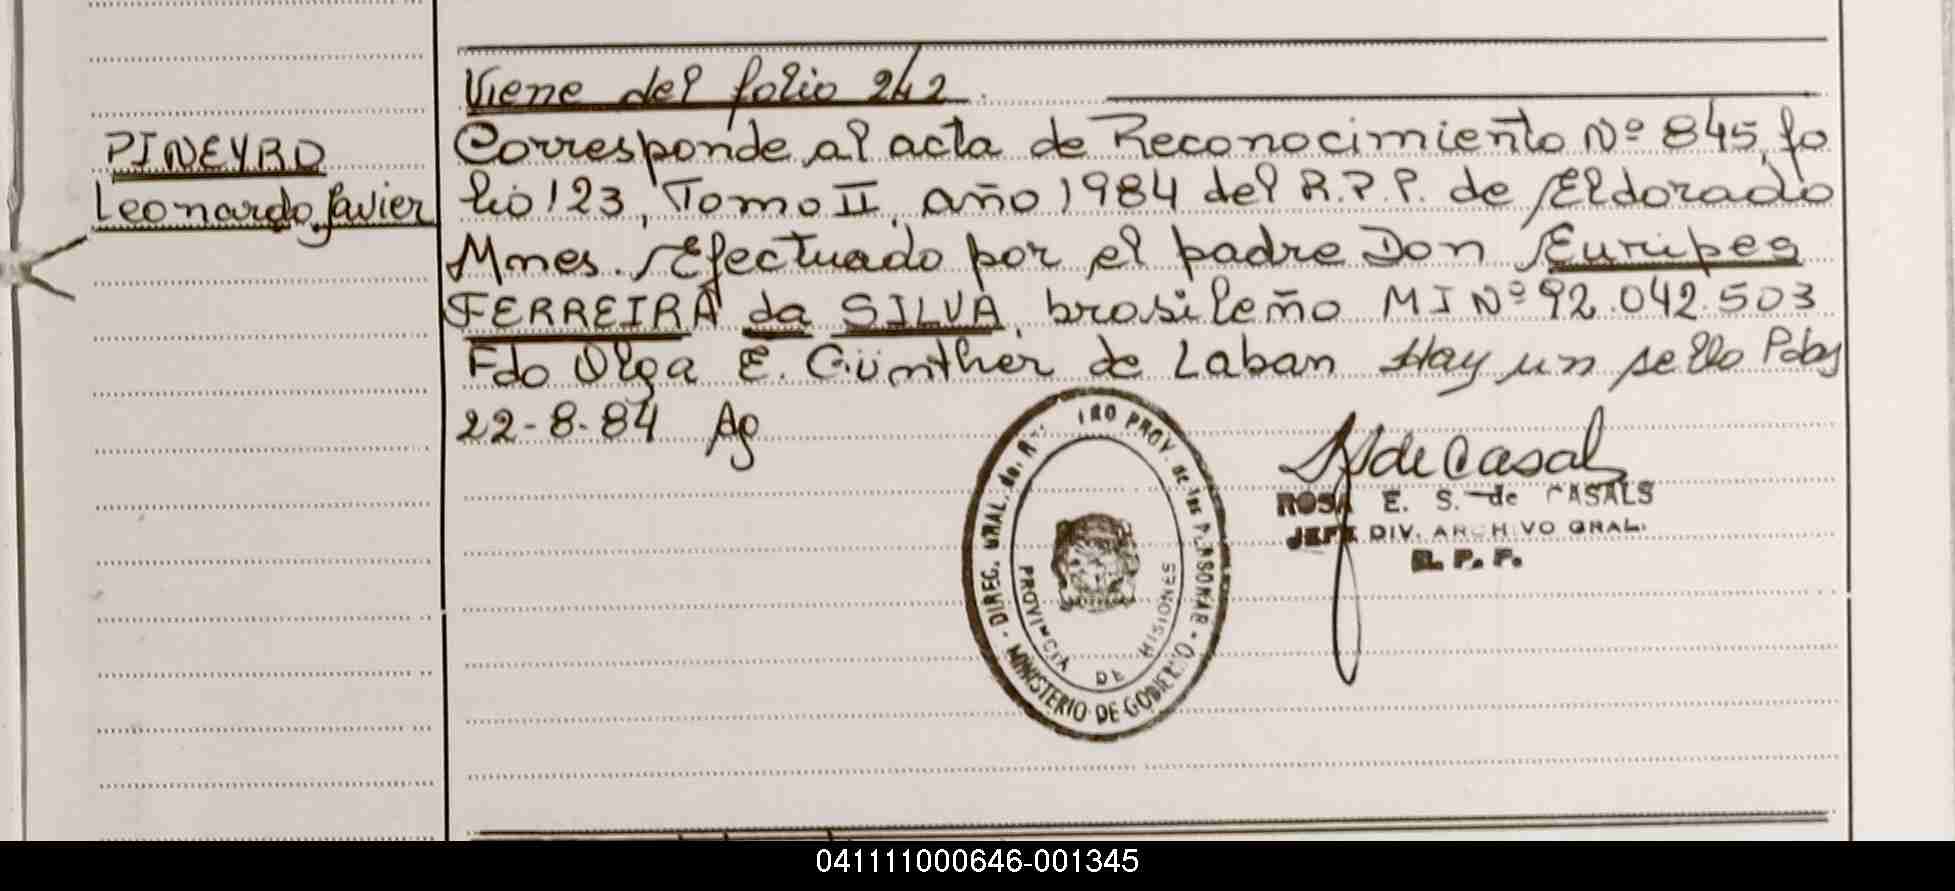 Viene del folio 242
PINEYRO
Leonardo Javier
Corresponde al acta de Reconocimiento Nº 845, fo
lio 123, Tomo II, año 1984 del R.P.P. de Eldorado
Mnes. Efectuado por el padre Don Euripes
FERREIRA da SILVA, brasileño MI Nº 92.042.503
Fdo Olga E. Günther de Laban Hay un sello Pdas
22-8-84 Ag
de Casals
ROSA E. S. de CASALS
JEFE DIV. ARCHIVO GRAL.
R. P. P.
DIREC. GRAL. de. PROV. de las PERSONAS - MINISTERIO DE GOBIERNO
PROVINCIA DE MISIONES
041111000646-001345